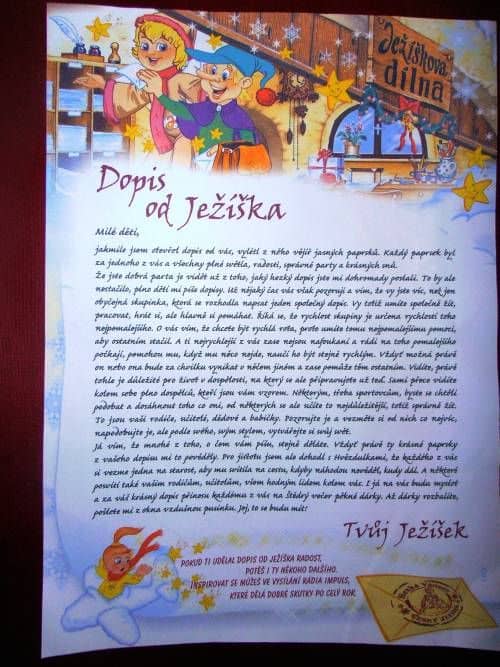 Ježíškova
dílna
Dopis
od Ježíška
Milé děti,
jakmile jsem otevřel dopis od vás, vylétl z něho vějíř jasných paprsků. Každý paprsek byl
za jednoho z vás a všechny plné světla, radosti, správné party a krásných snů.
Že jste dobrá parta je vidět už z toho, jaký hezký dopis jste mi dohromady poslali. To by ale
nestačilo, plno dětí mi píše dopisy. Už nějaký čas vás však pozoruji a vím, že vy jste víc, než jen
obyčejná skupinka, která se rozhodla napsat jeden společný dopis. Vy totiž umíte společně žít,
pracovat, hrát si, ale hlavně si pomáhat. Říká se, že rychlost skupiny je určena rychlostí toho
nejpomalejšího. O vás vím, že chcete být rychlá rota, proto umíte tomu nejpomalejšímu pomoci,
aby ostatním stačil. A ti nejrychlejší z vás zase nejsou nafoukaní a rádi na toho pomalejšího
počkají, pomohou mu, když mu něco nejde, naučí ho být stejně rychlým. Vždyť možná právě
on nebo ona bude za chvilku vynikat v něčem jiném a zase pomůže těm ostatním. Vidíte, právě
tohle je důležité pro život v dospělosti, na který se ale připravujete už teď. Sami přece vidíte
kolem sebe plno dospělých, kteří jsou vám vzorem. Některým, třeba sportovcům, byste se chtěli
podobat a dosáhnout toho co oni, od některých se ale učíte to nejdůležitější, totiž správně žít.
To jsou vaši rodiče, učitelé, dědové a babičky. Pozorujte je a vezměte si od nich co nejvíc,
napodobujte je, ale podle svého, svým stylem, vytvářejte si svůj svět.
Já vím, že mnohé z toho, o čem vám píšu, stejně děláte. Vždyť právě ty krásné paprsky
z vašeho dopisu mi to pověděly. Pro jistotu jsem ale dohodl s Hvězdulkami, že každého z vás
si vezme jedna na starost, aby mu svítila na cestu, kdyby náhodou nevěděl, kudy dál. A některé
posvítí také vašim rodičům, učitelům, všem hodným lidem kolem vás. I já na vás budu myslet
a za váš krásný dopis přinesu každému z vás na Štědrý večer pěkné dárky. Až dárky rozbalíte,
pošlete mi z okna vzdušnou pusinku. Joj, to se budu mít!
Tvůj Ježíšek
POKUD TI UDĚLAL DOPIS OD JEŽÍŠKA RADOST,
POTĚŠ I TY NĚKOHO DALŠÍHO.
INSPIROVAT SE MŮŽEŠ VE VYSÍLÁNÍ RÁDIA IMPULS,
KTERÉ DĚLÁ DOBRÉ SKUTKY PO CELÝ ROK.